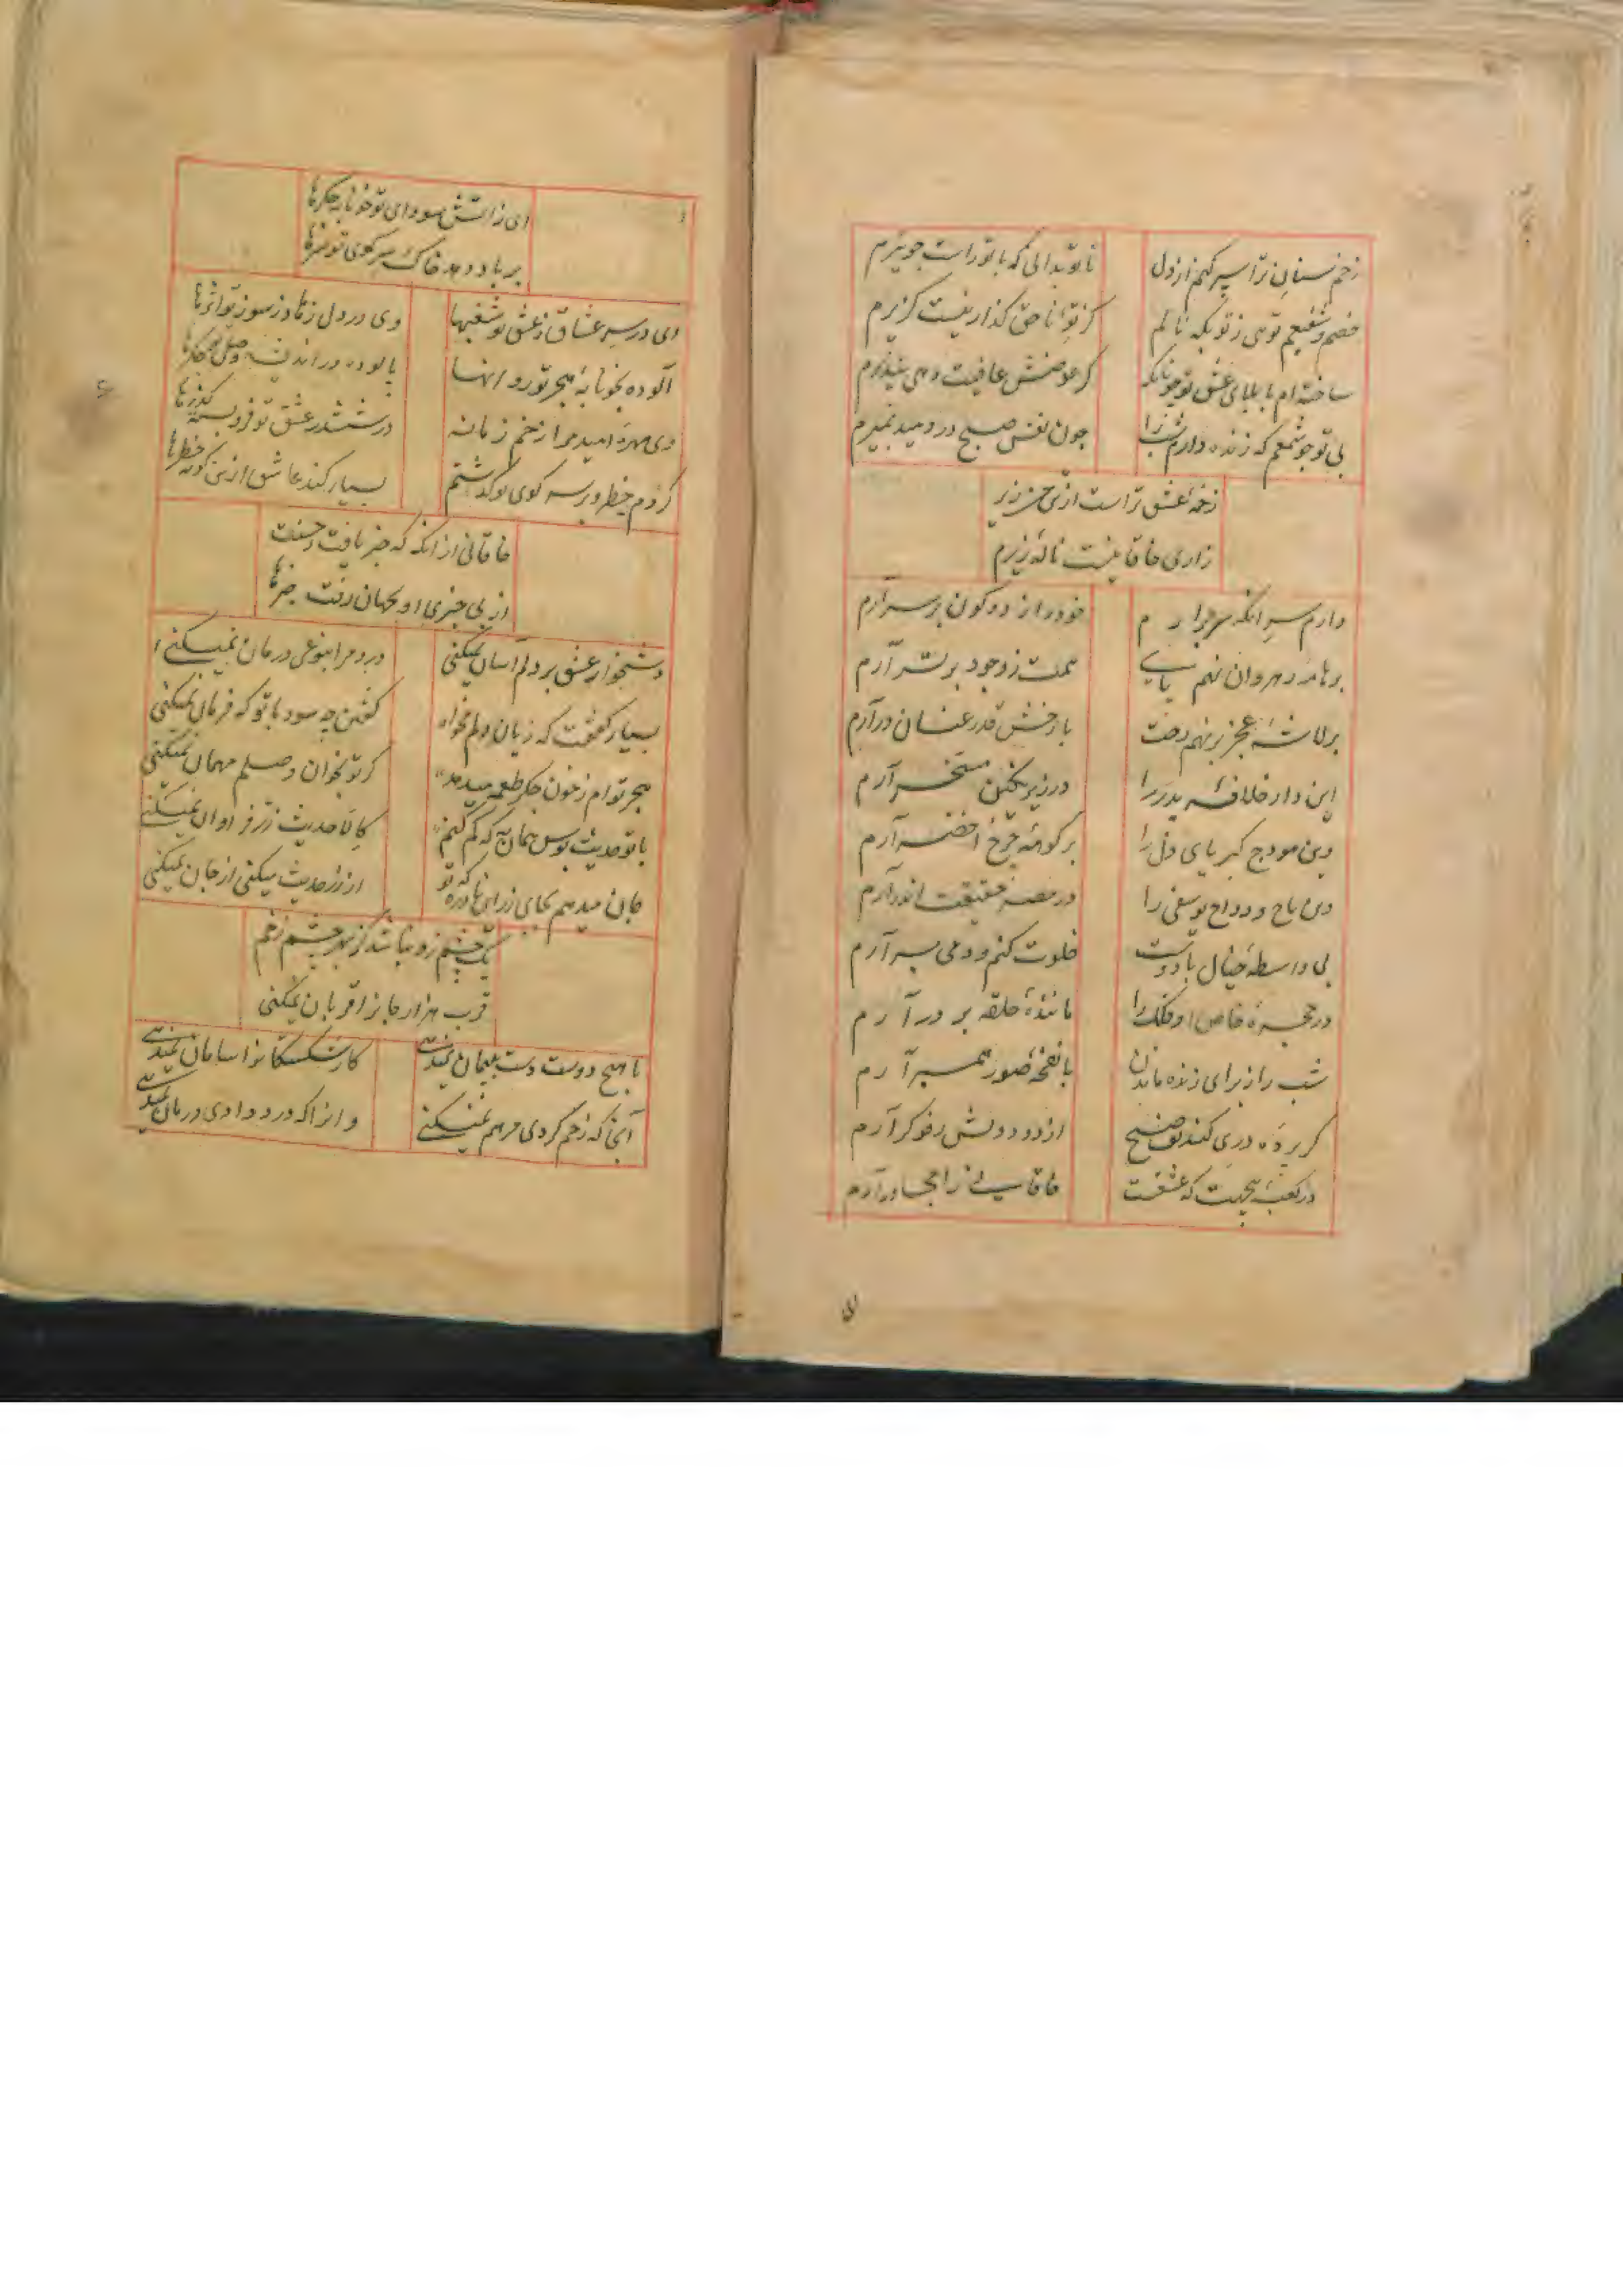 زخم سنان ترا سپر کنم از دل
تا تو بدانی که با تو راست چو تیرم
خصم و شفیعم توی ز تو بکه نالم
کز تو ناحق گذار نیست گزیرم
ساخته ام با بلای عشق تو چونانکه
کر عوضش عافیت دهی نپذیرم
بی تو چو شمعم که زنده دارم شب را
چون نفس صبح در دمید بمیرم
زخمه عشق تراست از پی
زاری خاقانیست ناله زیرم
دارم سر آنکه سر برآرم
خود را ز دو کون بر سر آرم
بر هامه رهروان نهم پای
همت ز وجود برتر آرم
بر لاشه عجز بر نهم رخت
با رخش قدر عنان درآرم
این دار خلافه پدر را
در زیر نکین مسخر آرم
وین هودج کبریای دل را
بر کوهه چرخ اخضر آرم
وین تاج دواج یوسفی را
در مصر حقیقت اندر آرم
بی واسطه خیال با دوست
خلوت کنم و دمی بر آرم
در حجره خاص او فلک را
ماننده حلقه بر در آرم
شب را ز برای زنده ماندن
با نفخه صور همبر آرم
گر پرده دری کند تف صبح
از دود دلش رفوگر آرم
در کعبه که عشقت
خاقانی را مجاور آرم
ای ز آتش سودای تو خونابه جگرها
بر باد دهد خاک سر کوی تو سرها
وی در سر عشاق ز عشق تو شغبها
وی در دل زهاد ز سوز تو اثرها
آلوده بخونابه هجر تو روانها
پالوده در اندیشه وصل تو جگرها
وی مهره امید مرا زخم زمانه
در ششدر عشق تو فرو بسته گذرها
کردم خطر و بر سر کوی تو گذشتم
بسیار کند عاشق ازین گونه خطرها
خاقانی از آنکه که خبر یافت ز حسنت
از بی خبری او بجهان رفت خبرها
دشخوار عشق بر دلم آسان نمیکنی
درد مرا بنوعی درمان نمیکنی
بسیار گفتمت که زیان دلم مخواه
گفتن چه سود با تو که فرمان نمیکنی
هجر توام ز خون جگر طعمه میدهد
کر تو بخوان وصلم مهمان نمیکنی
با تو حدیث بوس همان به که کم کنم
کالا حدیث زر فراوان نمیکنی
جان میدهم بجای زر این نادره که تو
از زر حدیث میکنی از جان نمیکنی
یک چشم زد نباشد کز بهر چشم زخم
قرب هزار جان را قربان نمیکنی
با هیچ دوست دست به پیمان نمیدهی
کار شکستگانرا سامان نمیدهی
آنجا که زخم کردی مرهم نمیکنی
و آنرا که درد دادی درمان نمیدهی